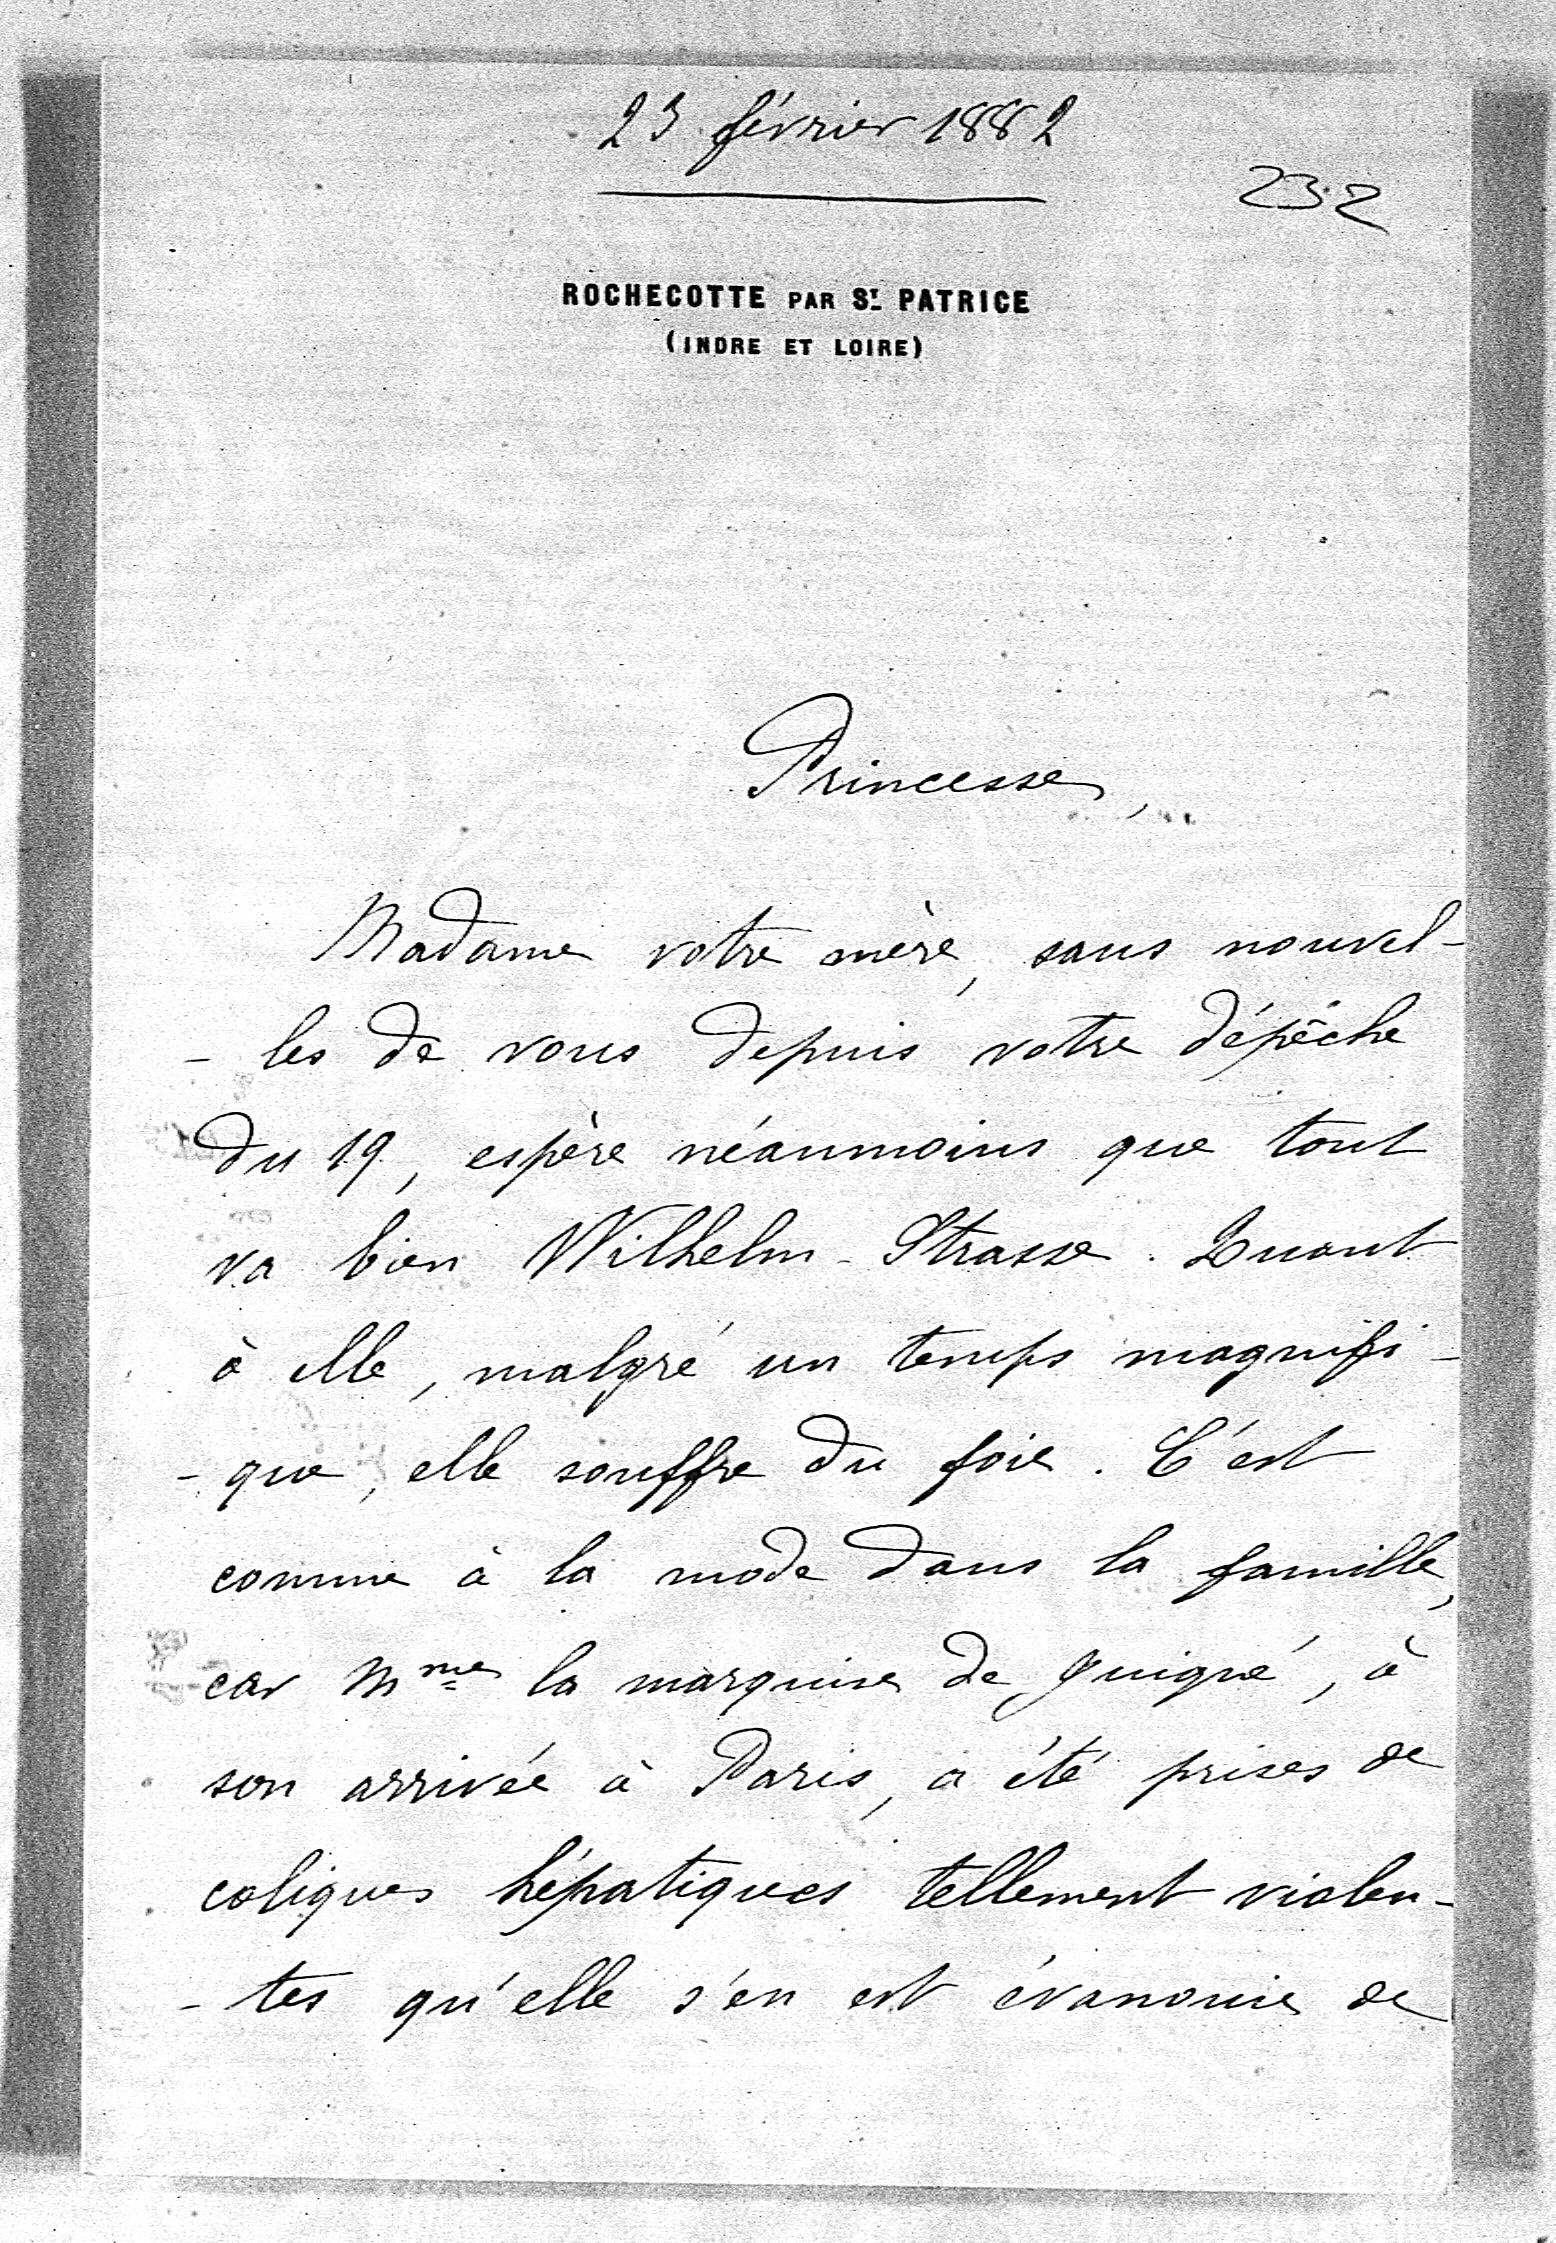 23 février 1882
232
ROCHECOTTE PAR ST PATRICE
(INDRE ET LOIRE)
Princesse,
Madame votre mère, sans nouvel-
- les de vous depuis votre dépêche
du 19, espère néanmoins que tout
va bien Wilhelm-Strasse. Quant
à elle, malgré un temps magnifi-
- que, elle souffre du foie. C'est
comme à la mode dans la famille,
car Mme la marquise de Juigné, à
son arrivée à Paris, a été prises de
coliques hépatiques tellement violen-
- tes qu'elle s'en est évanouie de